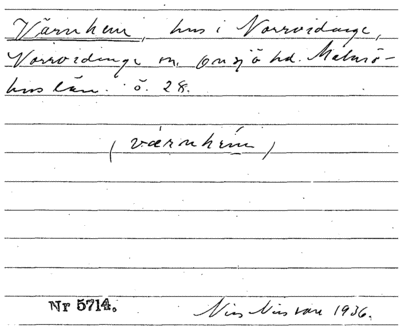 Värnhem, hus i Norrvidinge,
Norrvidinge sn, Onsjö hd. Malmö-
hus län. ö. 28.
(värnhem)
Nr 5714.
Nils Nilsson 1936.